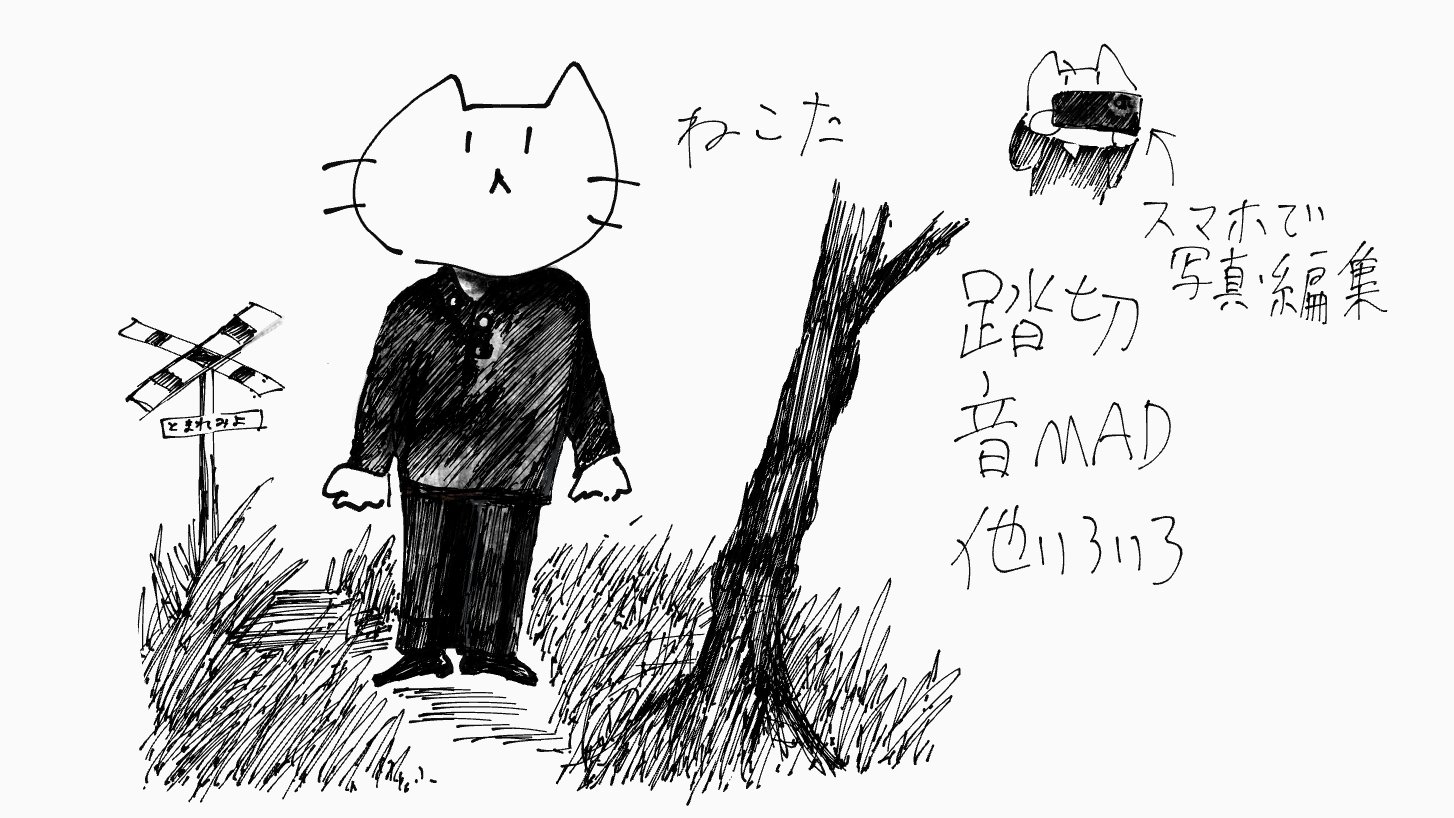 ねこた
スマホで
写真編集
踏切
音MAD
他いろいろ
とまれみよ